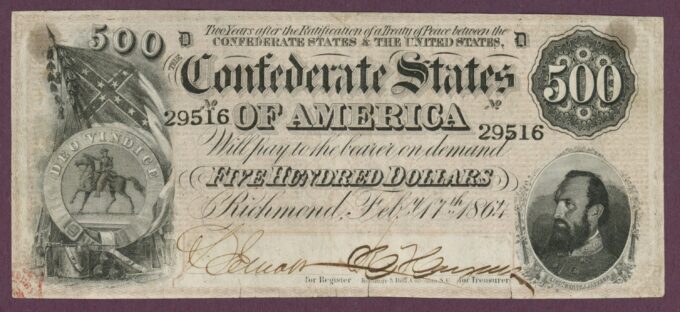 Two Years after the Ratification of a Treaty of Peace between the
CONFEDERATE STATES & THE UNITED STATES,
500 D D
THE
Confederate States 500
No 29516 OF AMERICA No 29516
Will pay to the bearer on demand
DEO VINDICE
FIVE HUNDRED DOLLARS
Richmond, Feby. 17th 1864
for Register
for Treasurer